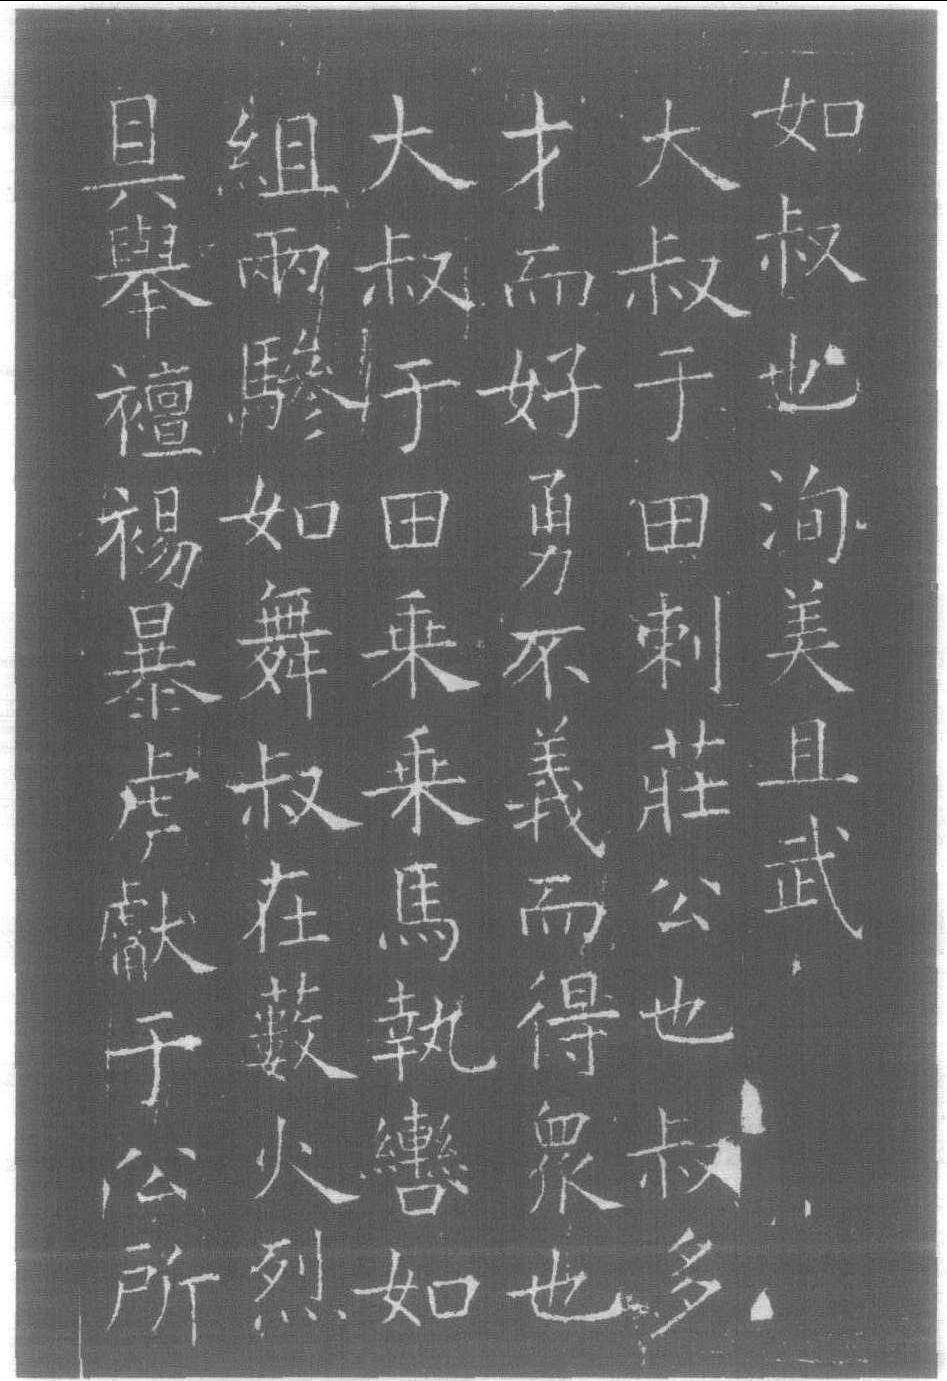 如叔也洵美且武
大叔于田刺莊公也叔多
才而好勇不義而得眾也
大叔于田乗乗馬執轡如
組兩驂如舞叔在藪火烈
具舉襢裼暴虎獻于公所